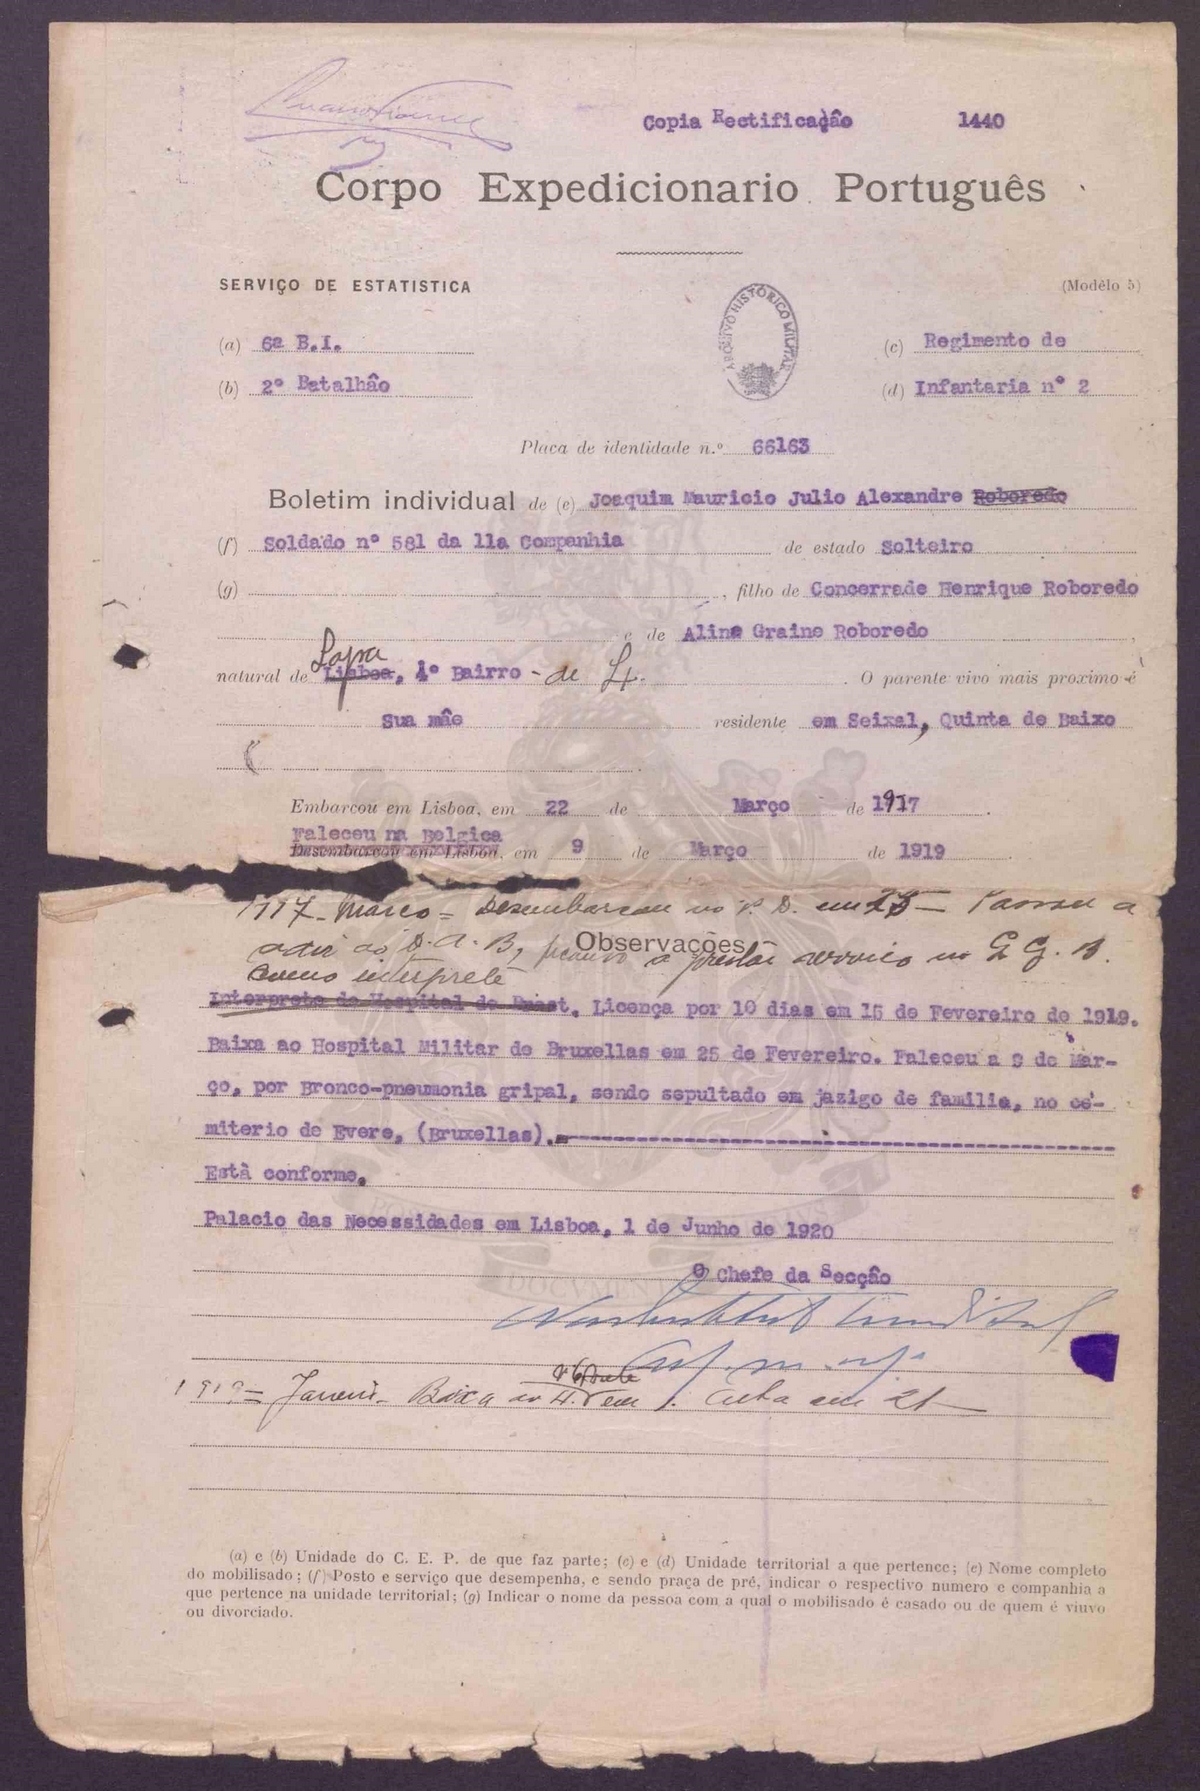 Copia Rectificação 1440
Corpo Expedicionario Português
SERVIÇO DE ESTATISTICA (Modêlo 5)
ARQUIVO HISTÓRICO MILITAR
(a) 6ª B.I. (c) Regimento de
(b) 2º Batalhâo (d) Infantaria nº 2
Placa de identidade n.º 66163
Boletim individual de (e) Joaquim Mauricio Julio Alexandre Roboredo
(f) Soldado nº 581 da 11a Companhia de estado Solteiro
(g) , filho de Concerrade Henrique Roboredo
e de Aline Graine Roboredo ,
Lapa
natural de Lisboa, 4º Bairro - de Lx. . O parente vivo mais proximo é
Sua mâe residente em Seixal, Quinta de Baixo
Embarcou em Lisboa, em 22 de Março de 1917 .
Faleceu na Belgica
Desembarcou em Lisboa, em 9 de Março de 1919 .
1917 - Março = Desembarcou no P. D. em 25 - Passou a
Observações
adir ao D. A. B, ficando a prestar serviço no Q. G. B.
como interprete
Interprete do Hospital de Brest. Licença por 10 dias em 15 de Fevereiro de 1919.
Baixa ao Hospital Militar de Bruxellas em 25 de Fevereiro. Faleceu a 9 de Mar-
ço, por Bronco-pneumonia gripal, sendo sepultado em jazigo de familia, no ce-
miterio de Evere, (Bruxellas).
Està conforme.
Palacio das Necessidades em Lisboa, 1 de Junho de 1920
O Chefe da Secçâo
DOCVMEN
1919 = Janeiro - Baixa ao H. em 1. Alta em 21
(a) e (b) Unidade do C. E. P. de que faz parte; (c) e (d) Unidade territorial a que pertence; (e) Nome completo
do mobilisado; (f) Posto e serviço que desempenha, e sendo praça de pré, indicar o respectivo numero e companhia a
que pertence na unidade territorial; (g) Indicar o nome da pessoa com a qual o mobilisado é casado ou de quem é viuvo
ou divorciado.